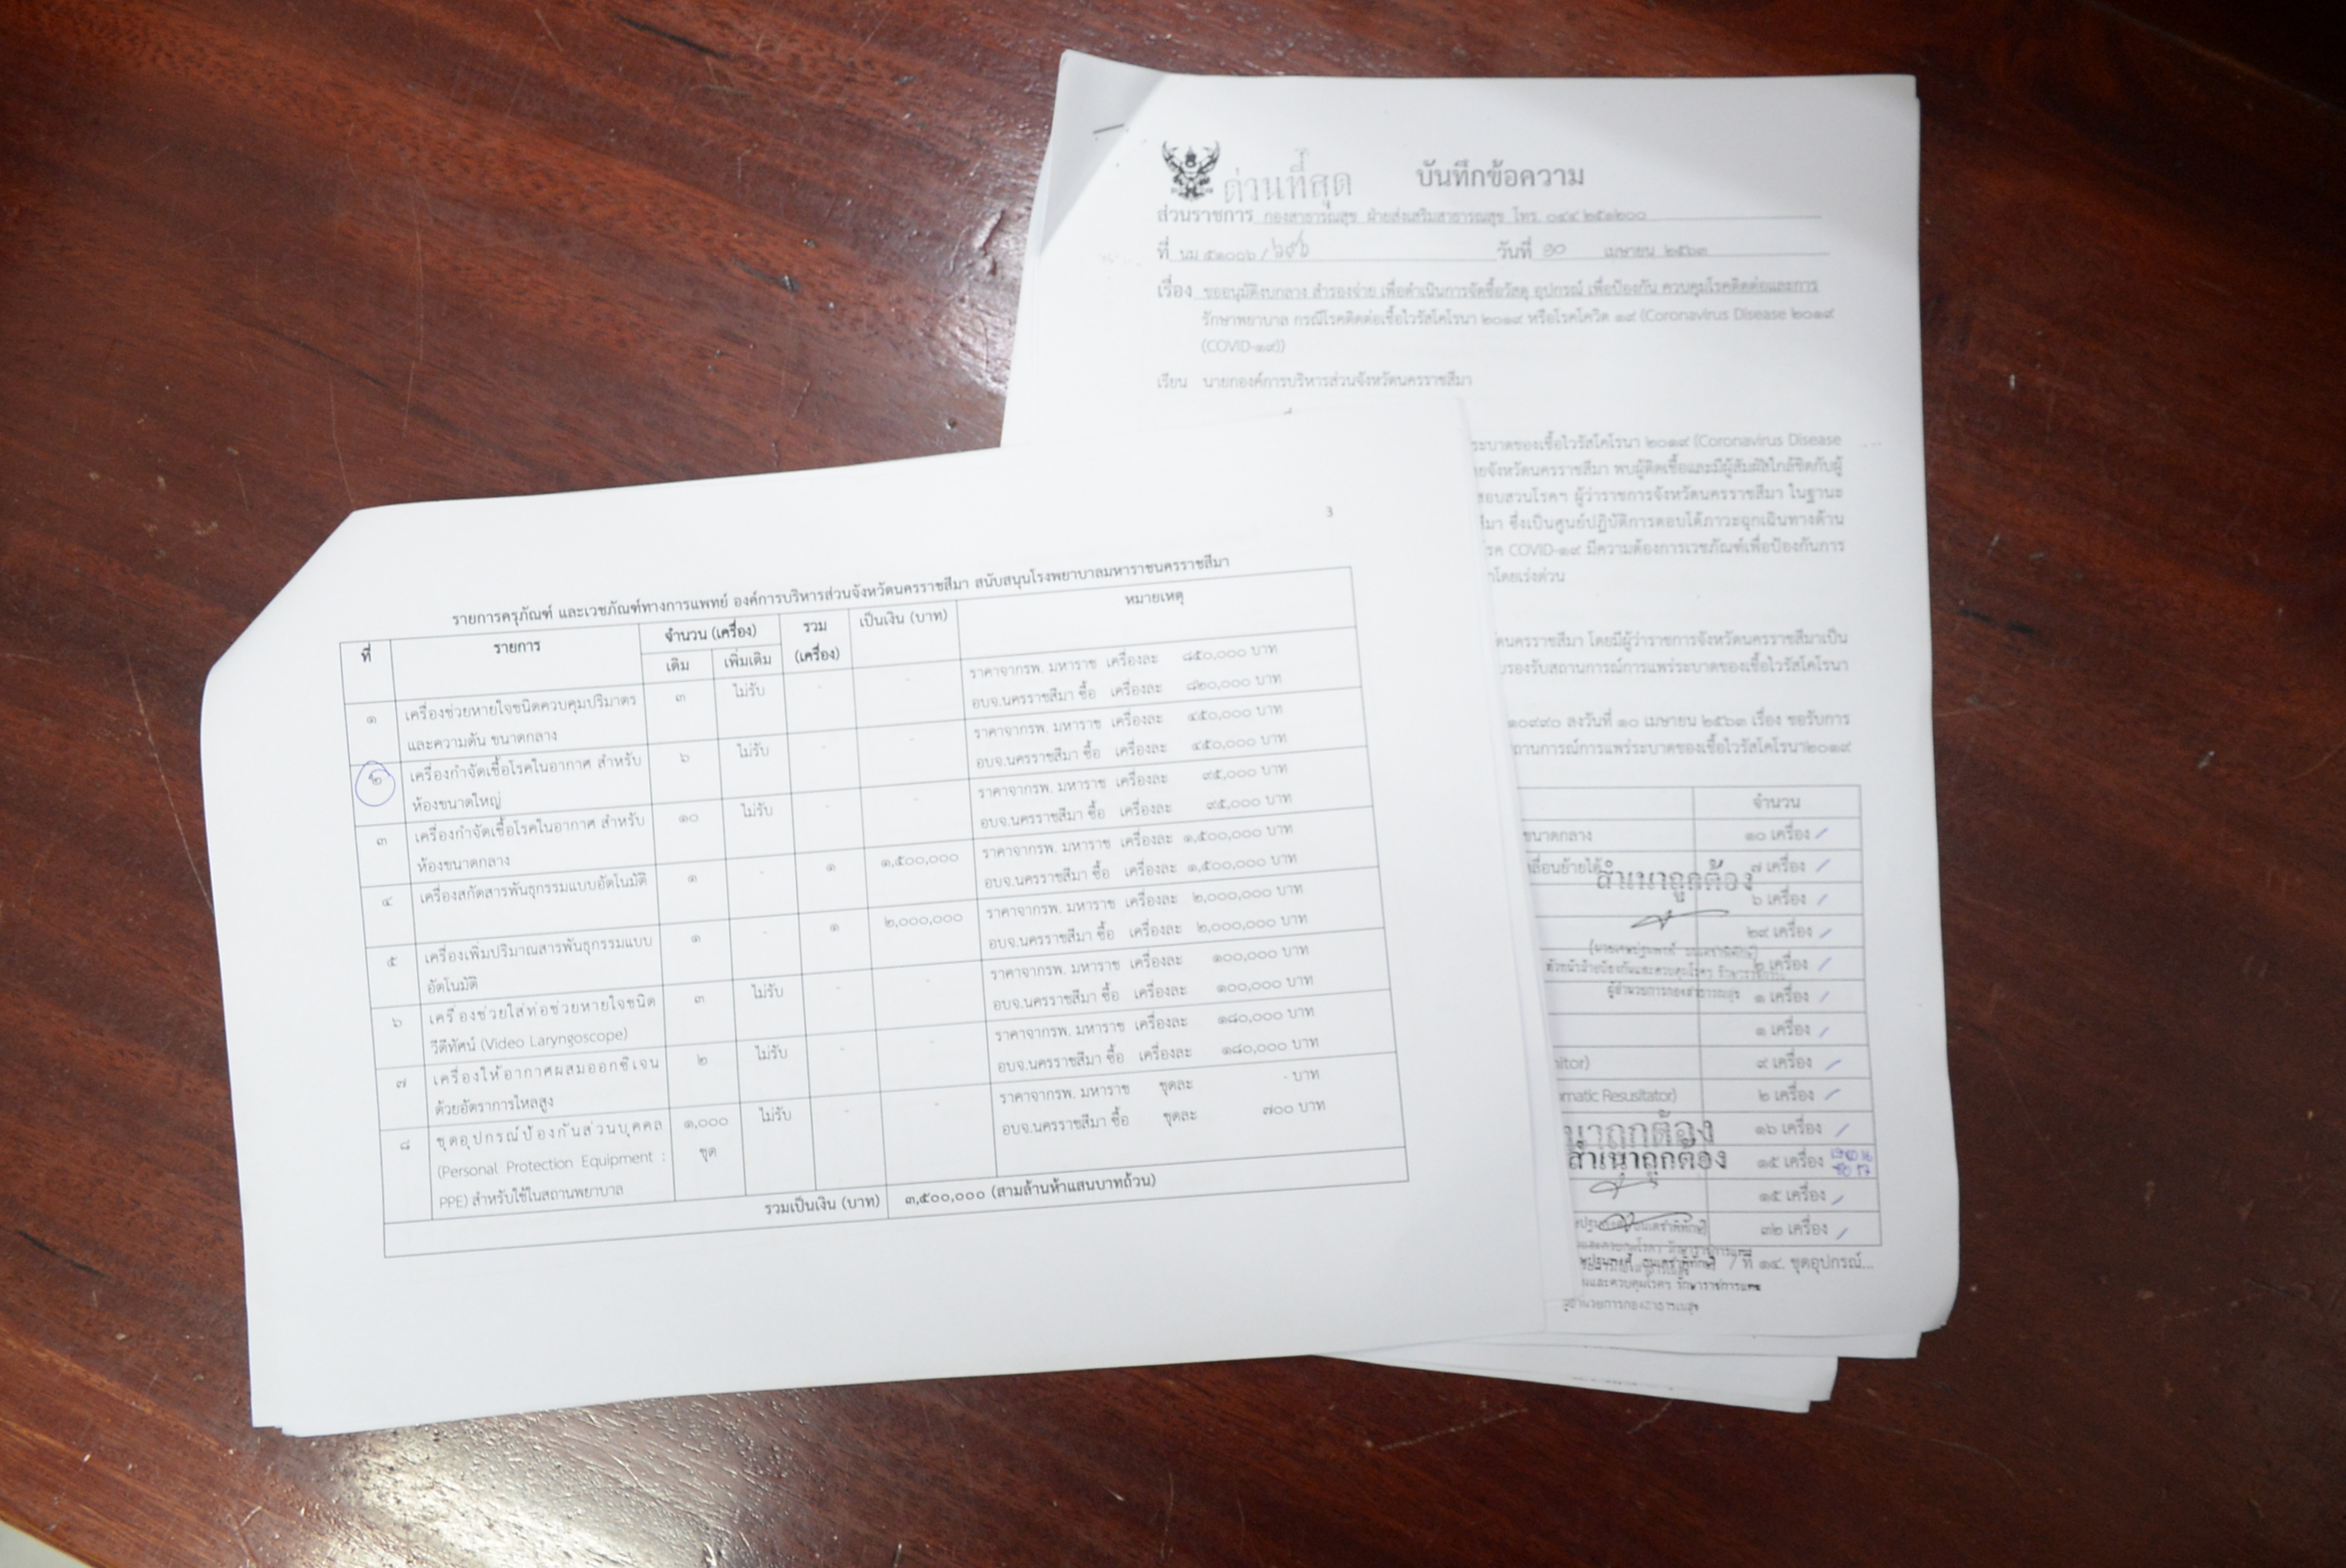 ด่วนที่สุด
บันทึกข้อความ
ส่วนราชการ กองสาธารณสุข ฝ่ายส่งเสริมสาธารณสุข โทร. ๐๔๔ ๒๕๑๒๐๐
ที่ นม ๕๑๐๐๖ / วันที่ ๑๐ เมษายน ๒๕๖๓
เรื่อง ขออนุมัติงบกลาง สำรองจ่าย เพื่อดำเนินการจัดซื้อวัสดุ อุปกรณ์ เพื่อป้องกัน ควบคุมโรคติดต่อและการ
รักษาพยาบาล กรณีโรคติดต่อเชื้อไวรัสโคโรนา ๒๐๑๙ หรือโรคโควิด ๑๙ (Coronavirus Disease ๒๐๑๙
(COVID-๑๙))
เรียน นายกองค์การบริหารส่วนจังหวัดนครราชสีมา
ระบาดของเชื้อไวรัสโคโรนา ๒๐๑๙ (Coronavirus Disease
จังหวัดนครราชสีมา พบผู้ติดเชื้อและมีผู้สัมผัสใกล้ชิดกับผู้
สอบสวนโรคฯ ผู้ว่าราชการจังหวัดนครราชสีมา ในฐานะ
สีมา ซึ่งเป็นศูนย์ปฏิบัติการตอบโต้ภาวะฉุกเฉินทางด้าน
โรค COVID-๑๙ มีความต้องการเวชภัณฑ์เพื่อป้องกันการ
โดยเร่งด่วน
นครราชสีมา โดยมีผู้ว่าราชการจังหวัดนครราชสีมาเป็น
รองรับสถานการณ์การแพร่ระบาดของเชื้อไวรัสโคโรนา
๑๐๙๙๐ ลงวันที่ ๑๐ เมษายน ๒๕๖๓ เรื่อง ขอรับการ
สถานการณ์การแพร่ระบาดของเชื้อไวรัสโคโรนา๒๐๑๙
จำนวน
ขนาดกลาง ๑๐ เครื่อง
เคลื่อนย้ายได้ ๗ เครื่อง
สำเนาถูกต้อง
๖ เครื่อง
๒๙ เครื่อง
๒ เครื่อง
ผู้อำนวยการกองสาธารณสุข
๑ เครื่อง
๑ เครื่อง
nitor) ๙ เครื่อง
omatic Resusitator) ๒ เครื่อง
นาถูกต้อง
๑๖ เครื่อง
สำเนาถูกต้อง
๑๕ เครื่อง
๑๕ เครื่อง
๓๒ เครื่อง
/ ที่ ๑๔. ชุดอุปกรณ์...
ผู้อำนวยการกองสาธารณสุข
3
รายการครุภัณฑ์ และเวชภัณฑ์ทางการแพทย์ องค์การบริหารส่วนจังหวัดนครราชสีมา สนับสนุนโรงพยาบาลมหาราชนครราชสีมา
ที่ รายการ จำนวน (เครื่อง) รวม เป็นเงิน (บาท) หมายเหตุ
เดิม เพิ่มเติม (เครื่อง)
๑ เครื่องช่วยหายใจชนิดควบคุมปริมาตร ๓ ไม่รับ - - ราคาจากรพ. มหาราช เครื่องละ ๘๕๐,๐๐๐ บาท
และความดัน ขนาดกลาง อบจ.นครราชสีมา ซื้อ เครื่องละ ๘๒๐,๐๐๐ บาท
๒ เครื่องกำจัดเชื้อโรคในอากาศ สำหรับ ๖ ไม่รับ - - ราคาจากรพ. มหาราช เครื่องละ ๔๕๐,๐๐๐ บาท
ห้องขนาดใหญ่ อบจ.นครราชสีมา ซื้อ เครื่องละ ๔๕๐,๐๐๐ บาท
๓ เครื่องกำจัดเชื้อโรคในอากาศ สำหรับ ๑๐ ไม่รับ - - ราคาจากรพ. มหาราช เครื่องละ ๙๕,๐๐๐ บาท
ห้องขนาดกลาง อบจ.นครราชสีมา ซื้อ เครื่องละ ๙๕,๐๐๐ บาท
๔ เครื่องสกัดสารพันธุกรรมแบบอัตโนมัติ ๑ - ๑ ๑,๕๐๐,๐๐๐ ราคาจากรพ. มหาราช เครื่องละ ๑,๕๐๐,๐๐๐ บาท
อบจ.นครราชสีมา ซื้อ เครื่องละ ๑,๕๐๐,๐๐๐ บาท
๕ เครื่องเพิ่มปริมาณสารพันธุกรรมแบบ ๑ - ๑ ๒,๐๐๐,๐๐๐ ราคาจากรพ. มหาราช เครื่องละ ๒,๐๐๐,๐๐๐ บาท
อัตโนมัติ อบจ.นครราชสีมา ซื้อ เครื่องละ ๒,๐๐๐,๐๐๐ บาท
๖ เครื่องช่วยใส่ท่อช่วยหายใจชนิด ๓ ไม่รับ - - ราคาจากรพ. มหาราช เครื่องละ ๑๐๐,๐๐๐ บาท
วีดีทัศน์ (Video Laryngoscope) อบจ.นครราชสีมา ซื้อ เครื่องละ ๑๐๐,๐๐๐ บาท
๗ เครื่องให้อากาศผสมออกซิเจน ๒ ไม่รับ - - ราคาจากรพ. มหาราช เครื่องละ ๑๘๐,๐๐๐ บาท
ด้วยอัตราการไหลสูง อบจ.นครราชสีมา ซื้อ เครื่องละ ๑๘๐,๐๐๐ บาท
๘ ชุดอุปกรณ์ป้องกันส่วนบุคคล ๑,๐๐๐ ไม่รับ - - ราคาจากรพ. มหาราช ชุดละ - บาท
(Personal Protection Equipment : ชุด อบจ.นครราชสีมา ซื้อ ชุดละ ๗๐๐ บาท
PPE) สำหรับใช้ในสถานพยาบาล
รวมเป็นเงิน (บาท) ๓,๕๐๐,๐๐๐ (สามล้านห้าแสนบาทถ้วน)